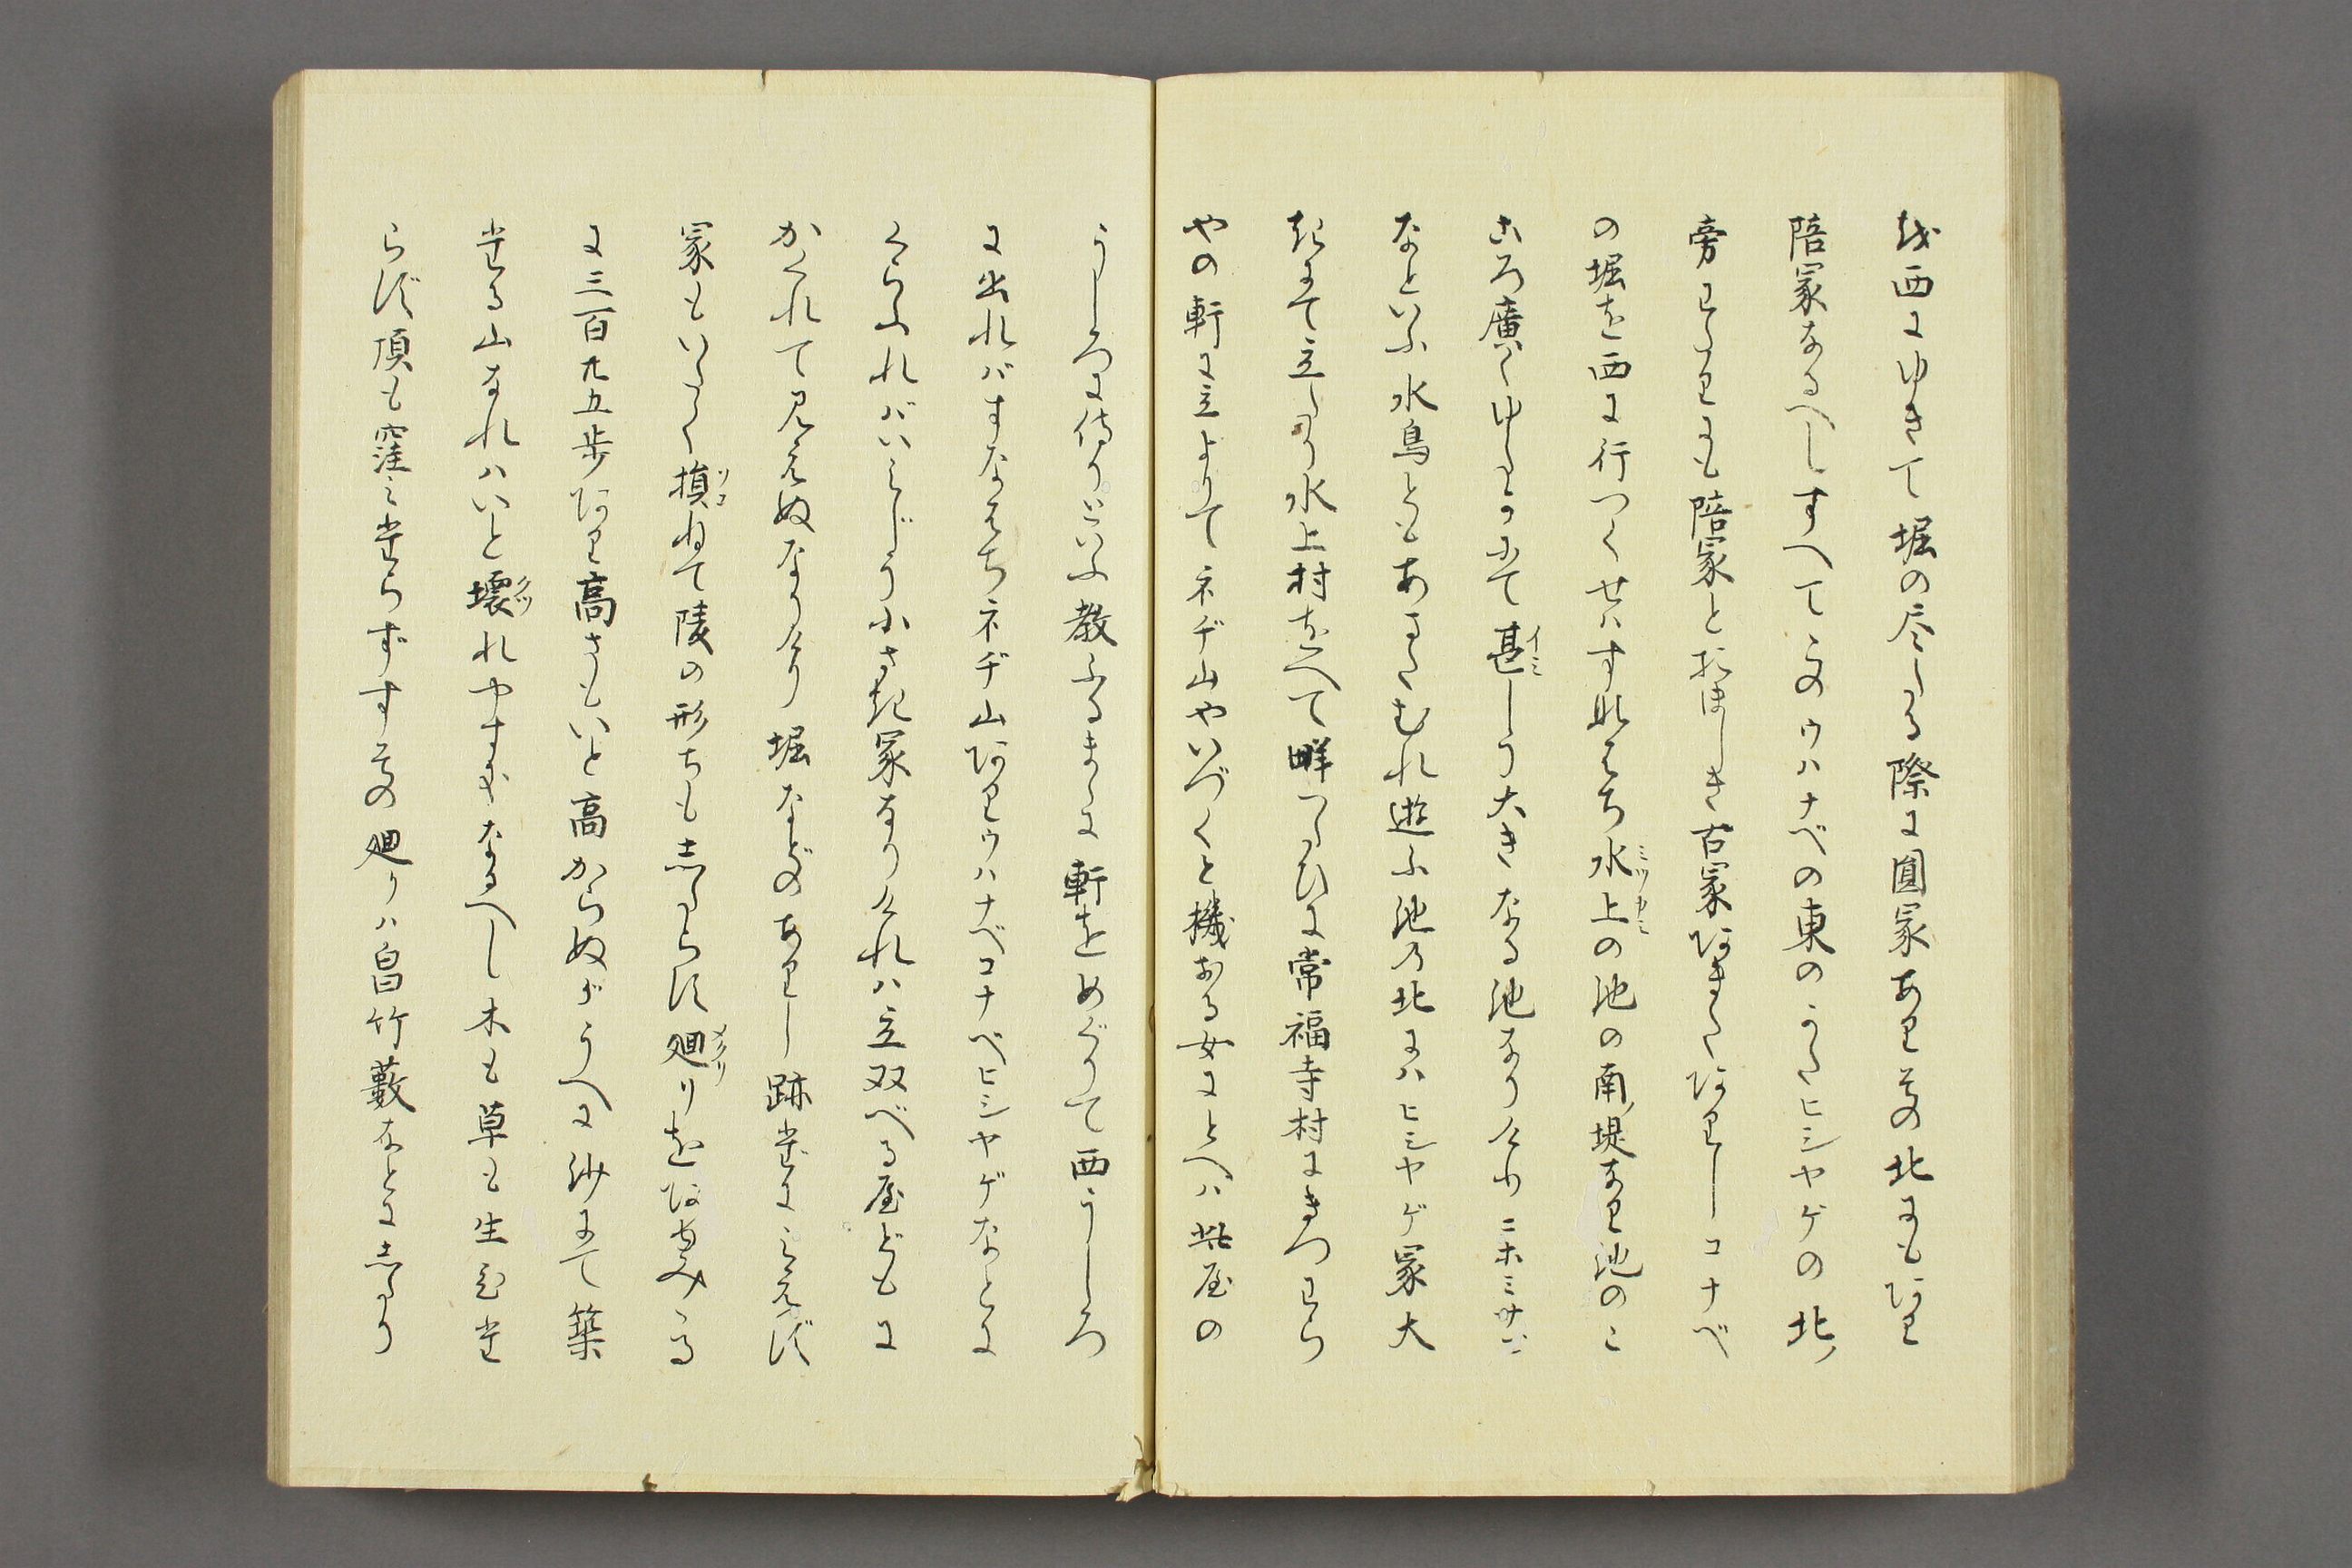 越西にゆきて堀の尽たる際に圓冢あり其の北にもあり
陪冢なるへしすへてこのウハナベの東のかたヒシヤゲの北
旁わたりにも陪冢とおほしき古冢あまたありしコナベ
の堀を西に行つくせはすなはち水上の池の南堤なり池のこ
ころ廣くゆたかにて甚しう大きなる池なりけり ニホミサゴ
なといふ水鳥ともあまたむれ遊ふ池の北にはヒシヤゲ冢大
きにて立たり水上村をへて畔つたひに常福寺村にきつわら
やの軒に立よりてネヂ山やいづくと機おる女にとへは此屋の
うしろに侍りといふ教ふるまゝに軒をめぐりて西うしろ
に出れバすなはちネヂ山ありウハナベコナベヒシヤゲなとに
くらふれバいみじう小さき冢なりけれは立双べる屋どもに
かくれて見えぬなりけり堀などのありし跡だにみえず
冢もいたく損ねて陵の形ちもしたらす廻りをあゆみみる
に三百九五歩あり高さもいと高からぬがうへに沙にて築
たる山なれはいと壊れやすきなるへし木も草も生ひた
らず頂も窪みたらずすその廻りは皆竹藪なとにしたり